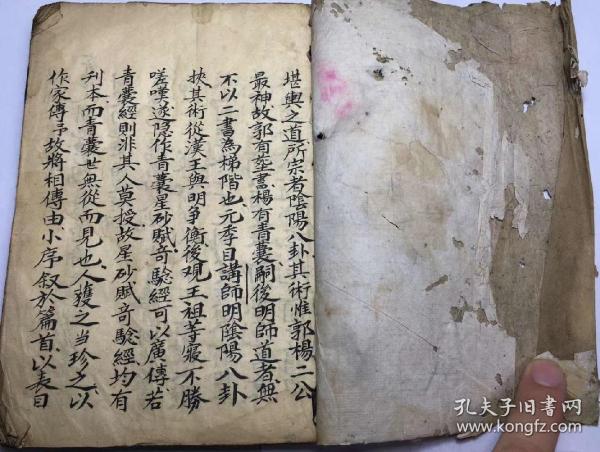 堪輿之道所宗者陰陽八卦其術惟郭楊二公
最神故郭有塟書楊有青囊嗣後明師道者無
不以二書為梯階也元季目講師明陰陽八卦
挾其術從漢王與明爭衡後观王祖等寢不勝
嗟嘆遂隐作青囊星砂賦竒騐經可以廣傳若
青囊經則非其人莫授故星砂賦竒騐經均有
刋本而青囊世無從而見也人獲之当珍之以
作家傳予故將相傳由小序叙於篇首以表目
孔夫子旧书网
www.kongfz.com